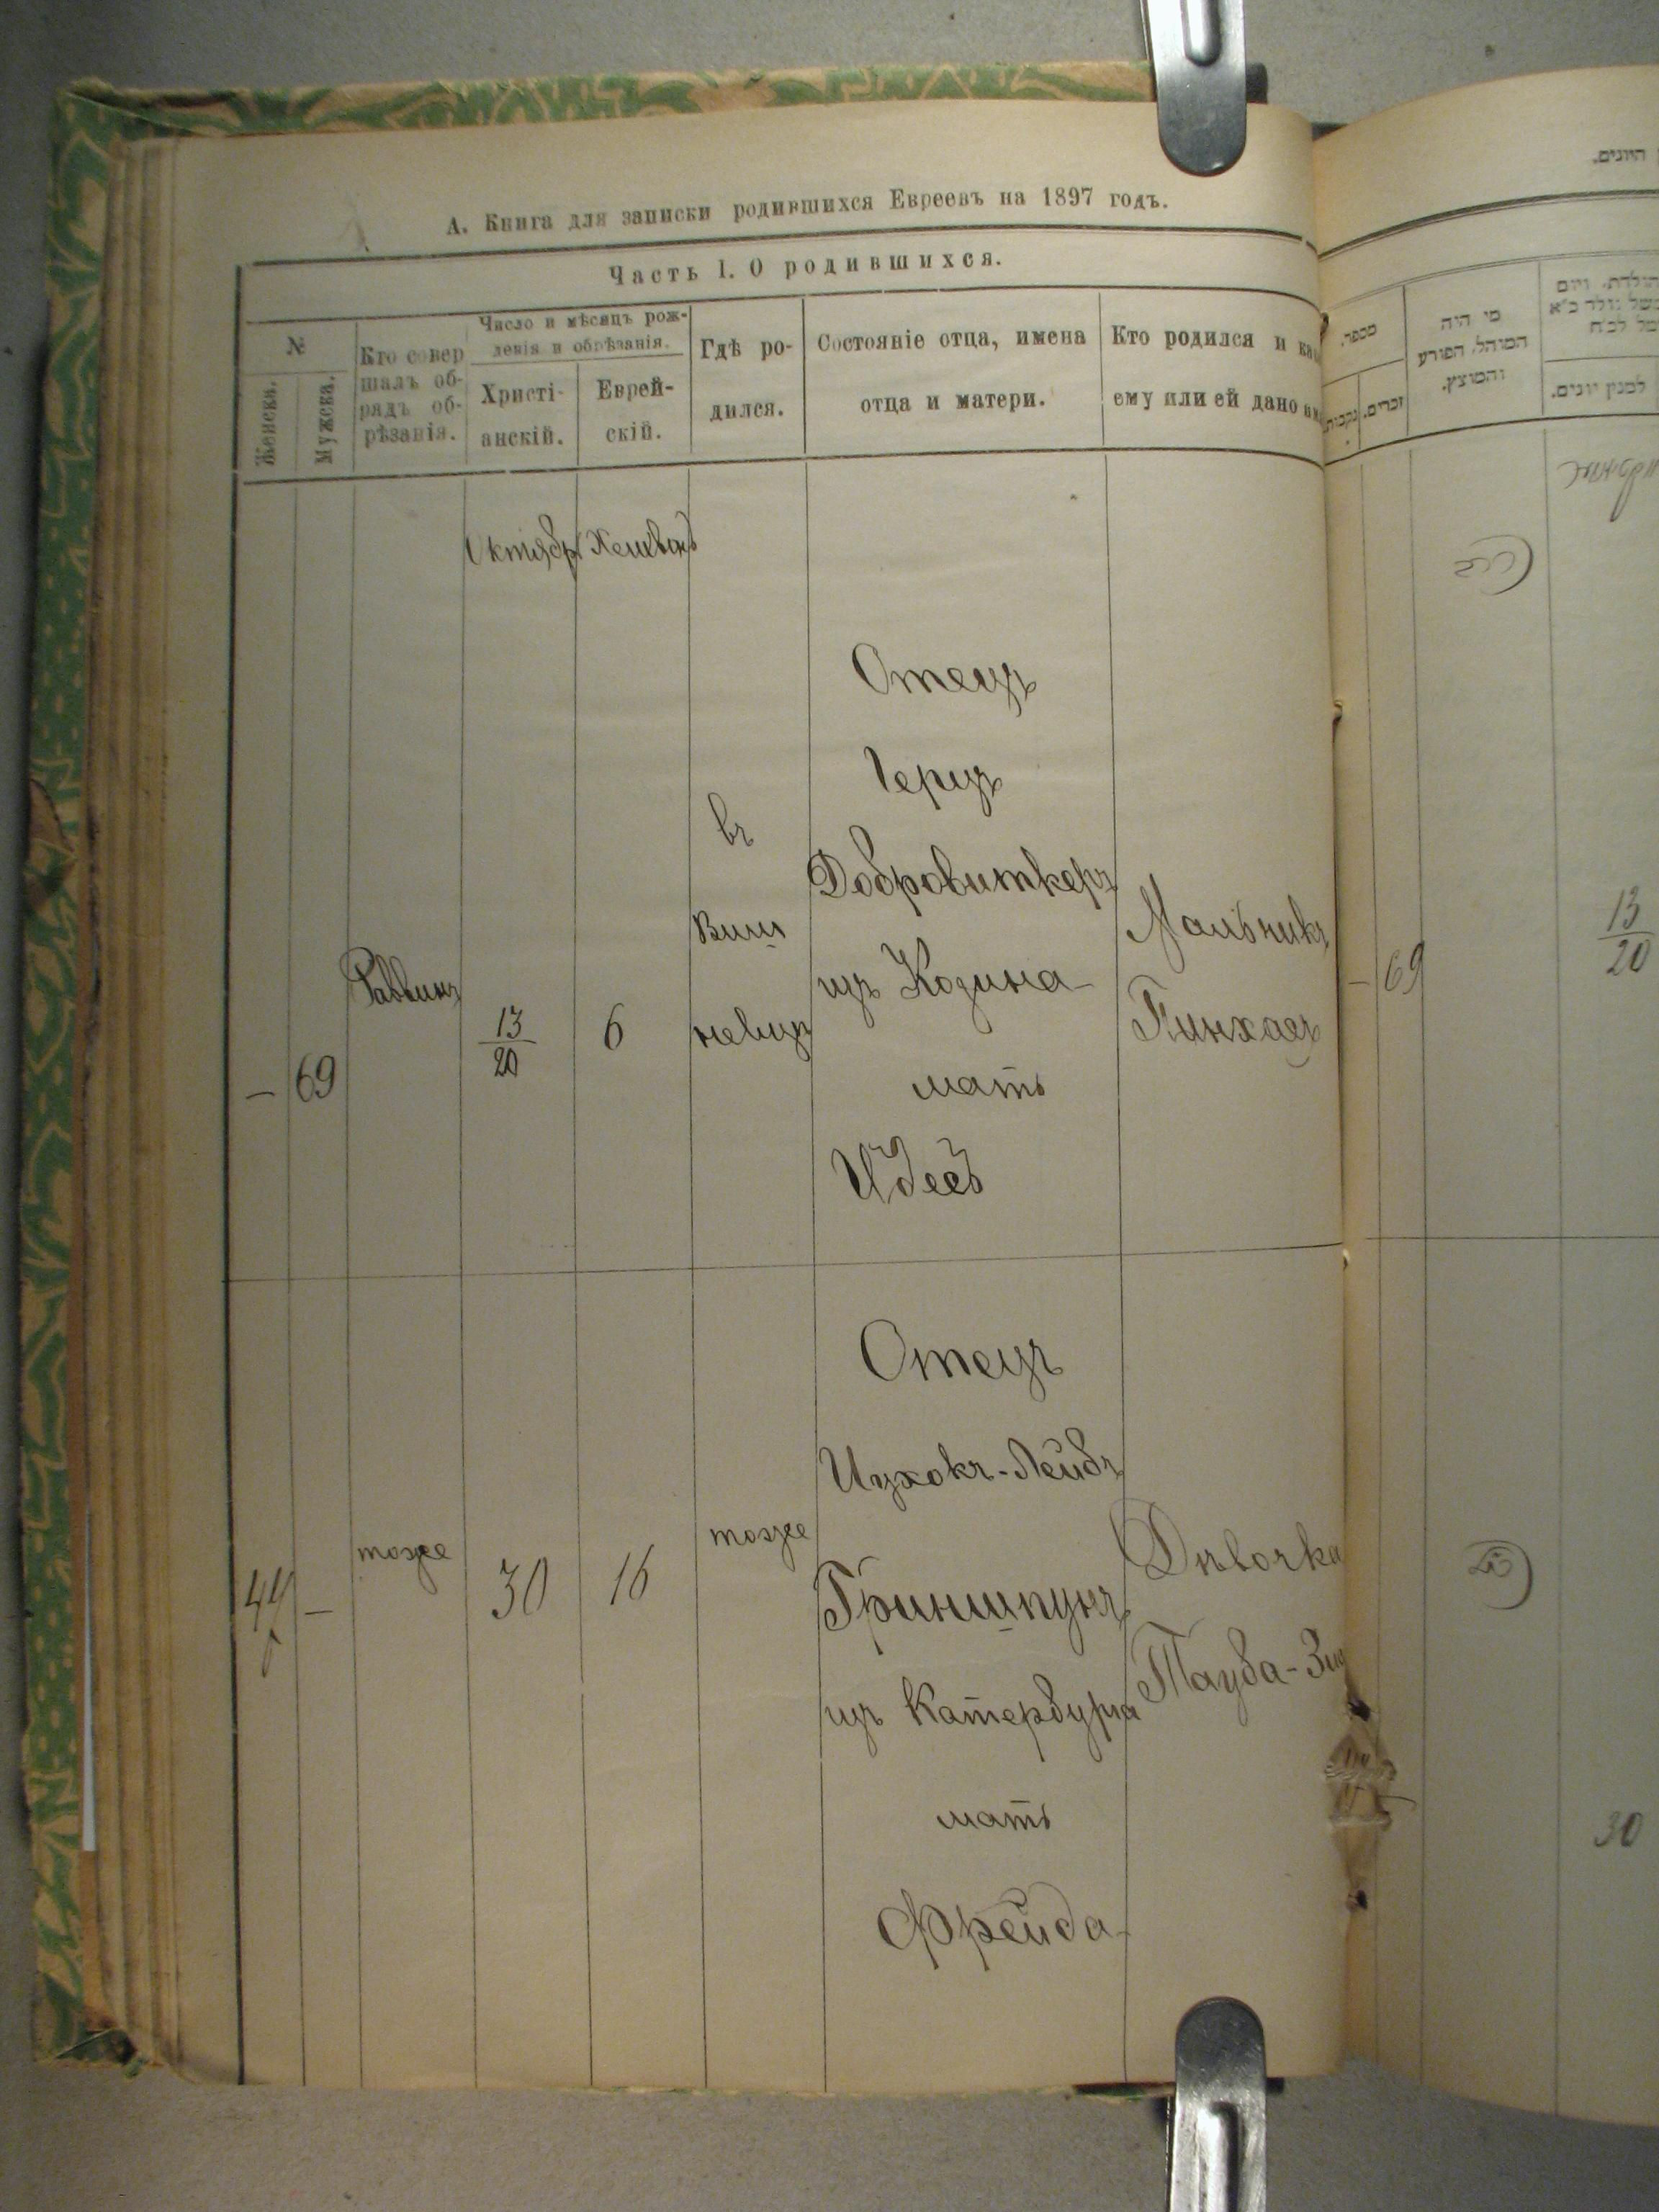 А. Книга для записки родившихся Евреевъ на 1897 годъ.
Часть I. О родившихся.
№
Женска.
Мужска.
Кто совер
шалъ об-
рядъ об-
рѣзанія.
Число и мѣсяцъ рож-
денія и обрѣзанія.
Христі-
анскій.
Еврей-
скій.
Гдѣ ро-
дился.
Состояніе отца, имена
отца и матери.
Кто родился и
ему или ей дано
Октябрь Хешванъ
– 69
Раввинъ
13
20
6
въ
Виш
невцѣ
Отецъ
Герцъ
Добровиткеръ
изъ Козина
мать
Идесъ
Мальчикъ
Пинхасъ
44 –
тоже
30
16
тоже
Отецъ
Ицхокъ-Лейбъ
Гриншпунъ
изъ Катербурга
мать
Фрейда
Дѣвочка
Тауба-
היונים.
מספר.
נקבות.
זכרים.
מי היה
המוהל, הפורע
והמוצץ.
למנין יונים.
– 69
13
20
30